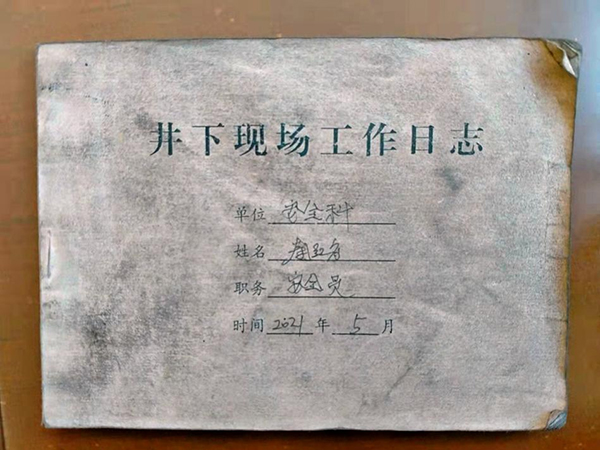 井下现场工作日志
单位 安全科
姓名
职务 安全员
时间 2021 年 5 月